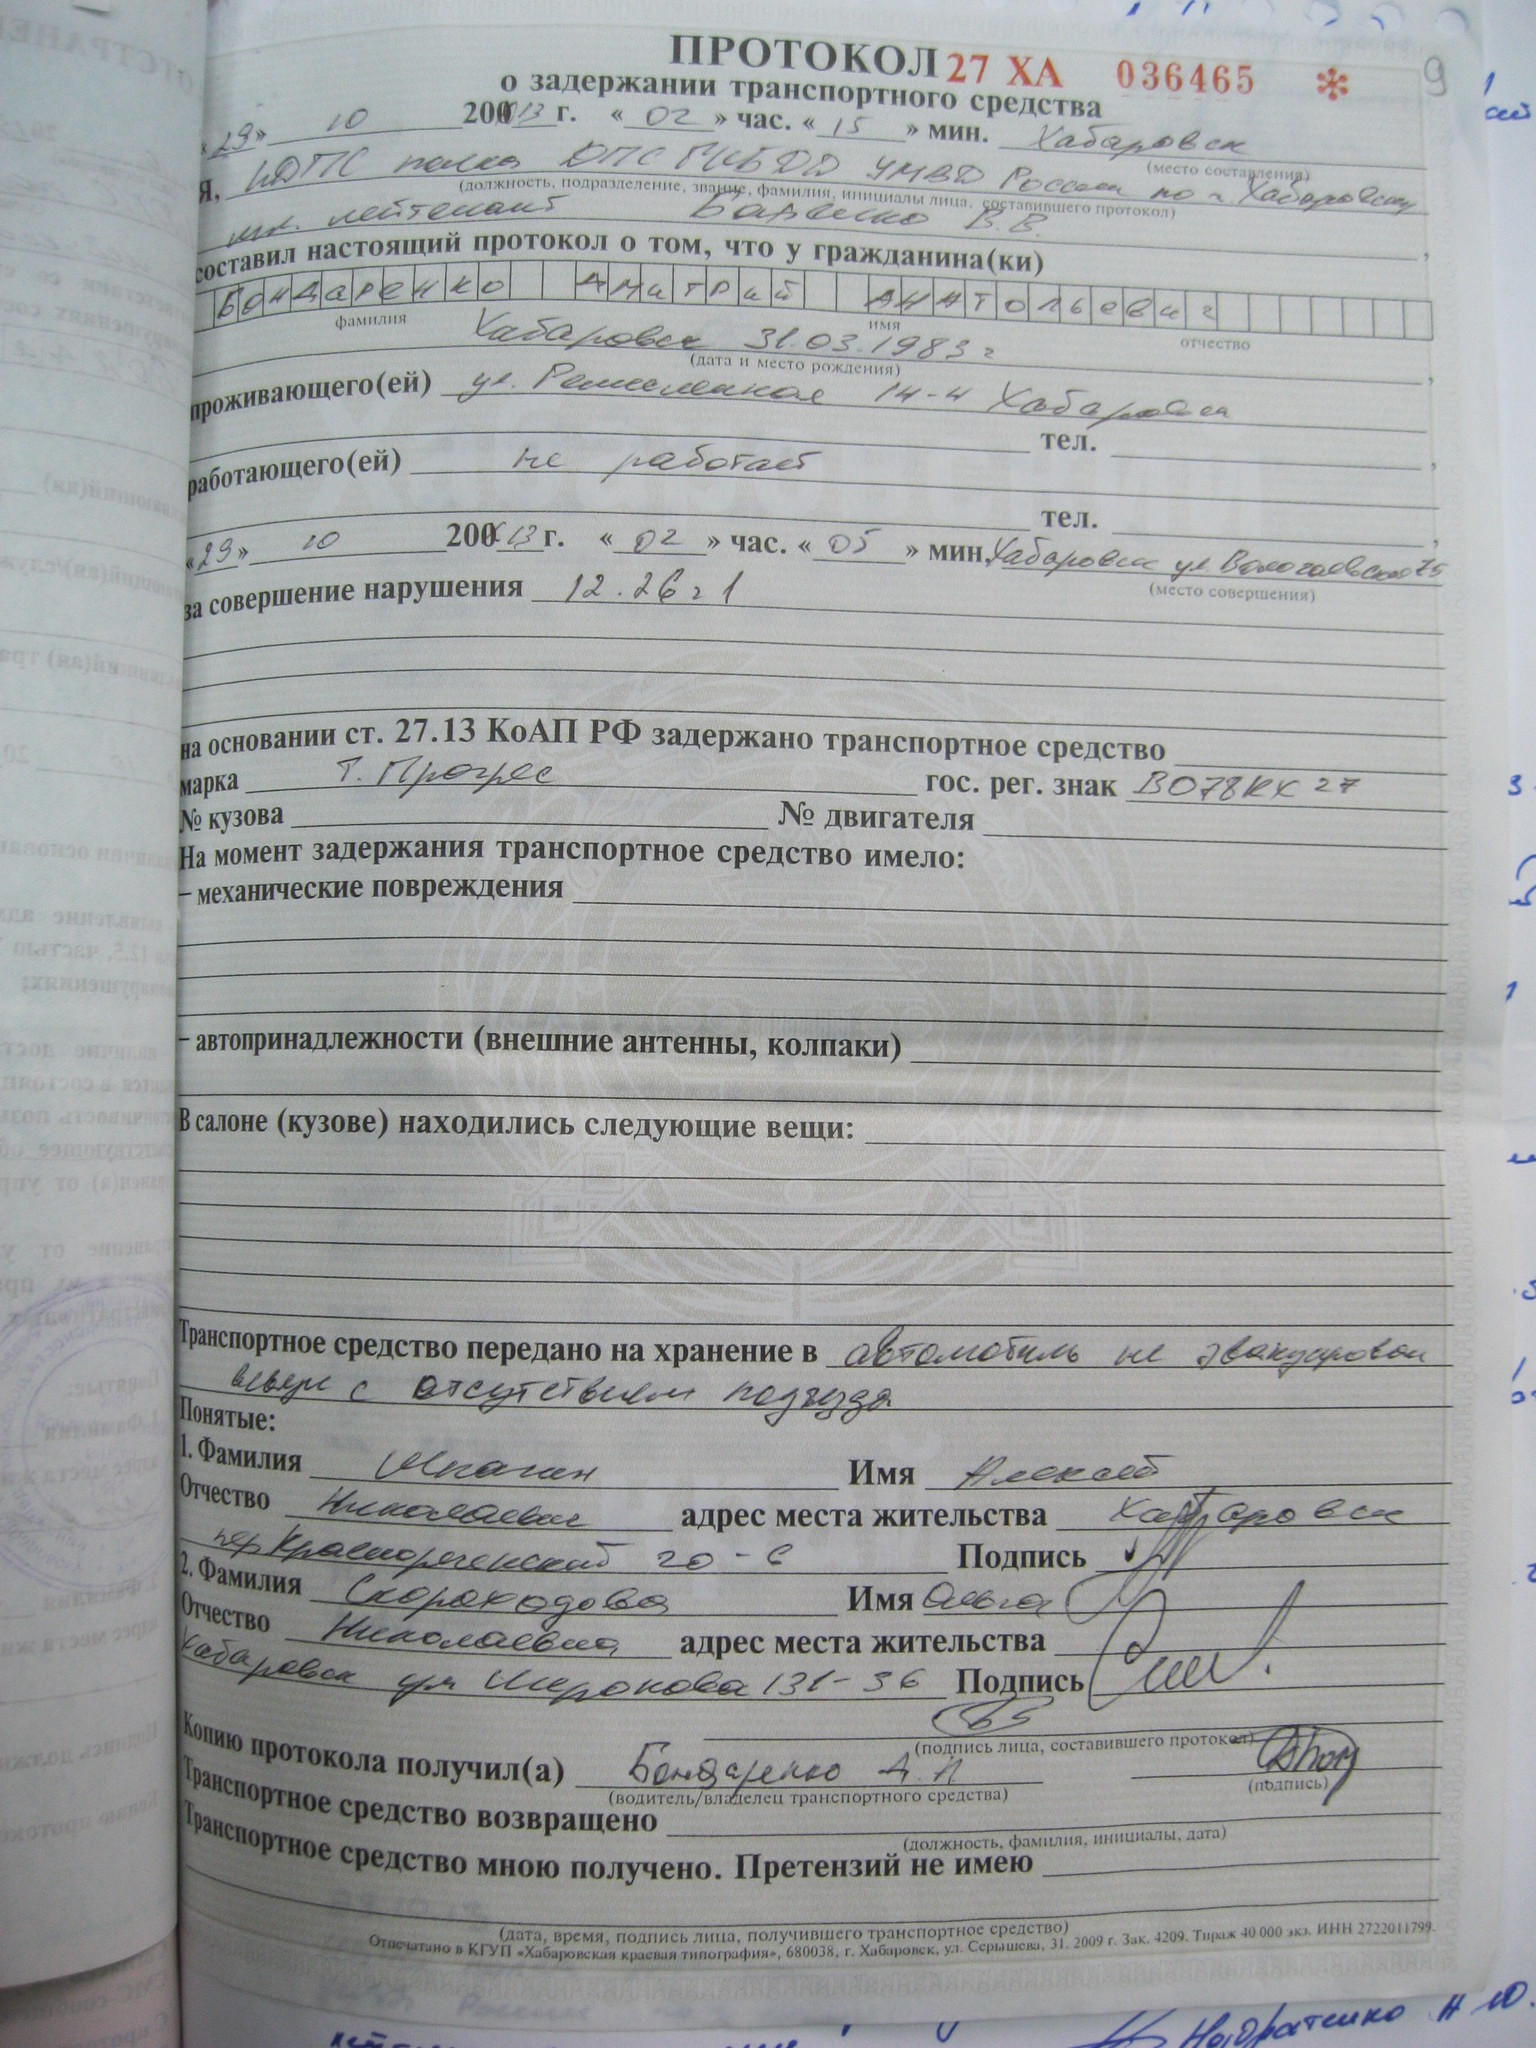 ПРОТОКОЛ 27 ХА 036465 *
9
о задержании транспортного средства
«29» 10 20013 г. «02» час. «15» мин. Хабаровск
(место составления)
Я, ИДПС полка ДПС ГИБДД УМВД России по г. Хабаровску
(должность, подразделение, звание, фамилия, инициалы лица, составившего протокол)
мл. лейтенант В.В.
составил настоящий протокол о том, что у гражданина(ки)
Бондаренко Дмитрий Анатольевич
фамилия имя отчество
Хабаровск 31.03.1983 г
(дата и место рождения)
проживающего(ей) ул. Ремесленная 14-4 Хабаровск
тел.
работающего(ей) не работает
тел.
«29» 10 20013 г. «02» час. «05» мин. Хабаровск ул. Волочаевская 75
(место совершения)
за совершение нарушения 12.26 ч 1
на основании ст. 27.13 КоАП РФ задержано транспортное средство
марка Т. Прогрес гос. рег. знак В078КХ 27
№ кузова № двигателя
На момент задержания транспортное средство имело:
– механические повреждения
– автопринадлежности (внешние антенны, колпаки)
В салоне (кузове) находились следующие вещи:
Транспортное средство передано на хранение в автомобиль не эвакуирован
в связи с отсутствием подъезда
Понятые:
1. Фамилия Имя Алексей
Отчество Николаевич адрес места жительства Хабаровск
пер Краснореченский 20-6 Подпись
2. Фамилия Скороходова Имя Ольга
Отчество Николаевна адрес места жительства
Хабаровск ул Широкова 131-36 Подпись
(подпись лица, составившего протокол)
Копию протокола получил(а) Бондаренко Д.А
(водитель/владелец транспортного средства) (подпись)
Транспортное средство возвращено
(должность, фамилия, инициалы, дата)
Транспортное средство мною получено. Претензий не имею
(дата, время, подпись лица, получившего транспортное средство)
Отпечатано в КГУП «Хабаровская краевая типография», 680038, г. Хабаровск, ул. Серышева, 31. 2009 г. Зак. 4209. Тираж 40 000 экз. ИНН 2722011799.